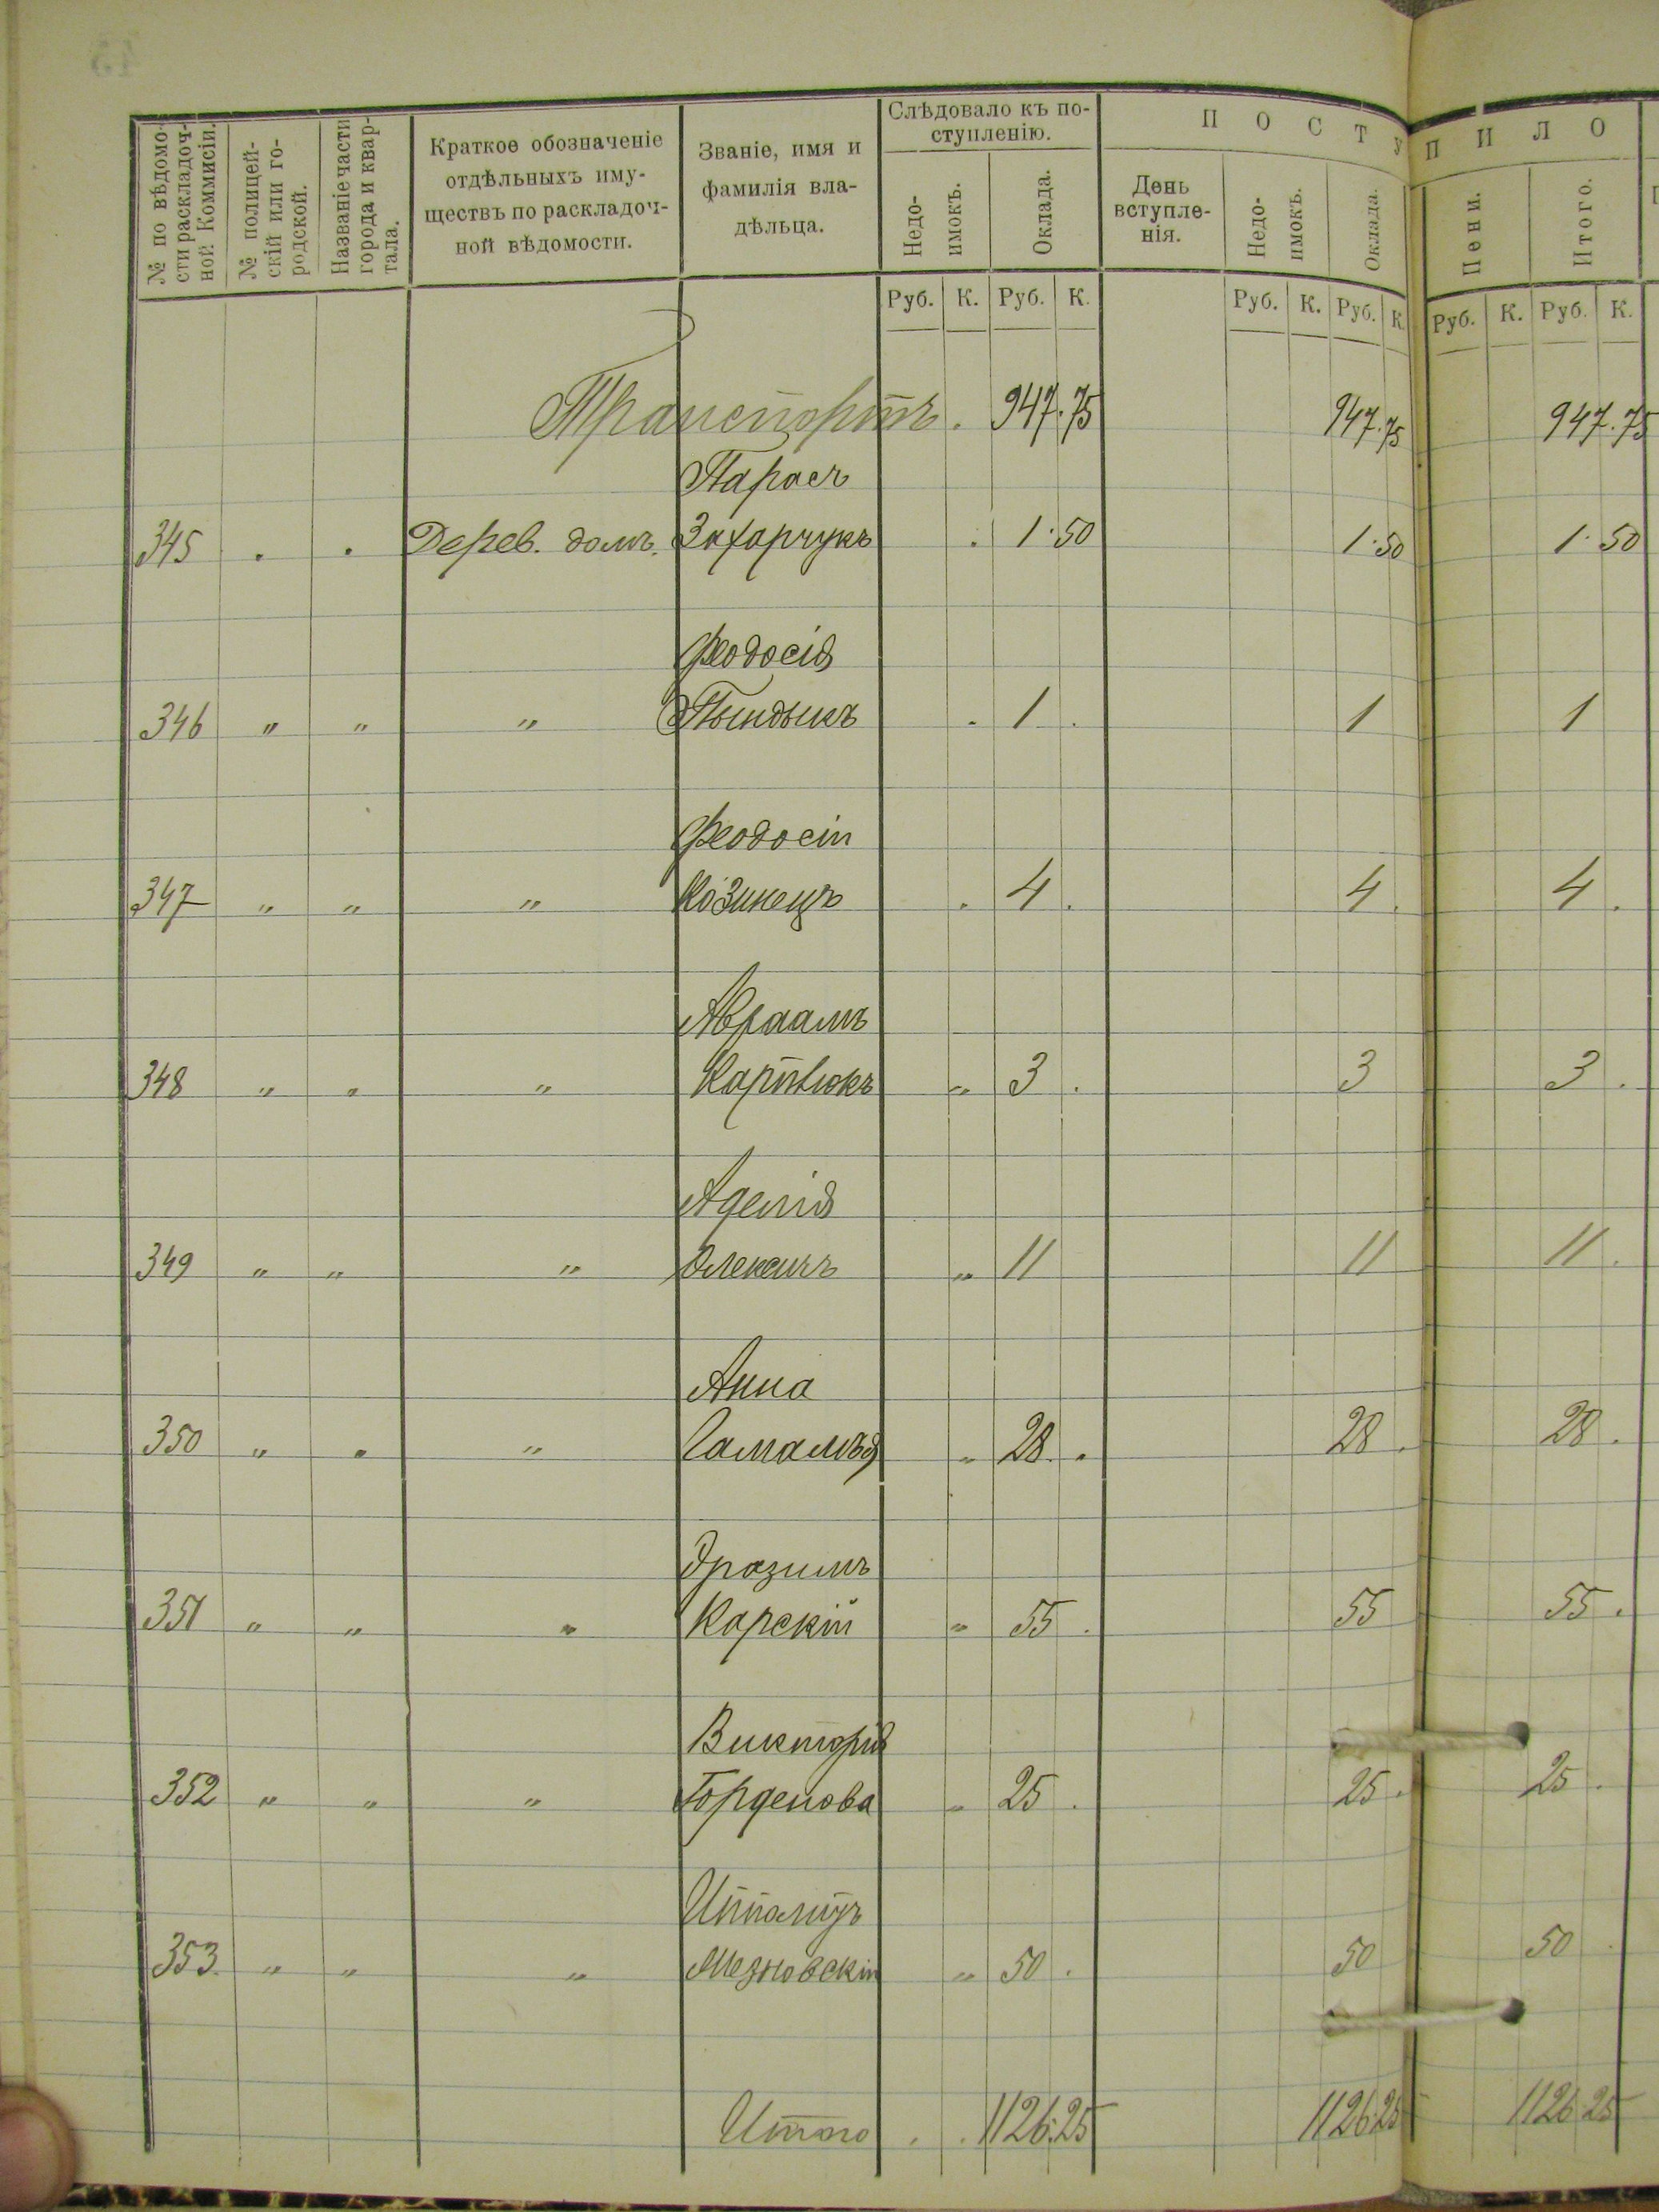 № по вѣдомости раскладочной Коммисіи. | № полицейскій или городской. | Названіе части города и квартала. | Краткое обозначеніе отдѣльныхъ имуществъ по раскладочной вѣдомости. | Званіе, имя и фамилія владѣльца. | Слѣдовало къ поступленію. | ПОСТУПИЛО
Недоимокъ. | Оклада. | День вступленія. | Недоимокъ. | Оклада. | Пени. | Итого.
Руб. К. Руб. К. Руб. К. Руб. К. Руб. К. Руб. К.
Транспортъ . 947.75 947.75 947.75
Тарасъ
345 . . Дерев. домъ. Захарчукъ . 1.50 1.50 1.50
Феодосія
346 " " " Пындыкъ . 1 . 1 1
Феодосій
347 " " " Козинецъ . 4 . 4 . 4 .
Авраамъ
348 " " " Карпѣвюкъ " 3 . 3 3 .
Аделія
349 " " " Олексичъ " 11 11 11 .
Анна
350 " " " Гамалѣя " 28 . 28 . 28 .
Эразимъ
351 " " " Карскій " 55 . 55 55 .
Викторія
352 " " " Горденова " 25 . 25 . 25 .
353. " " " " 50 . 50 50 .
Итого . . 1126.25 1126.25 1126.25